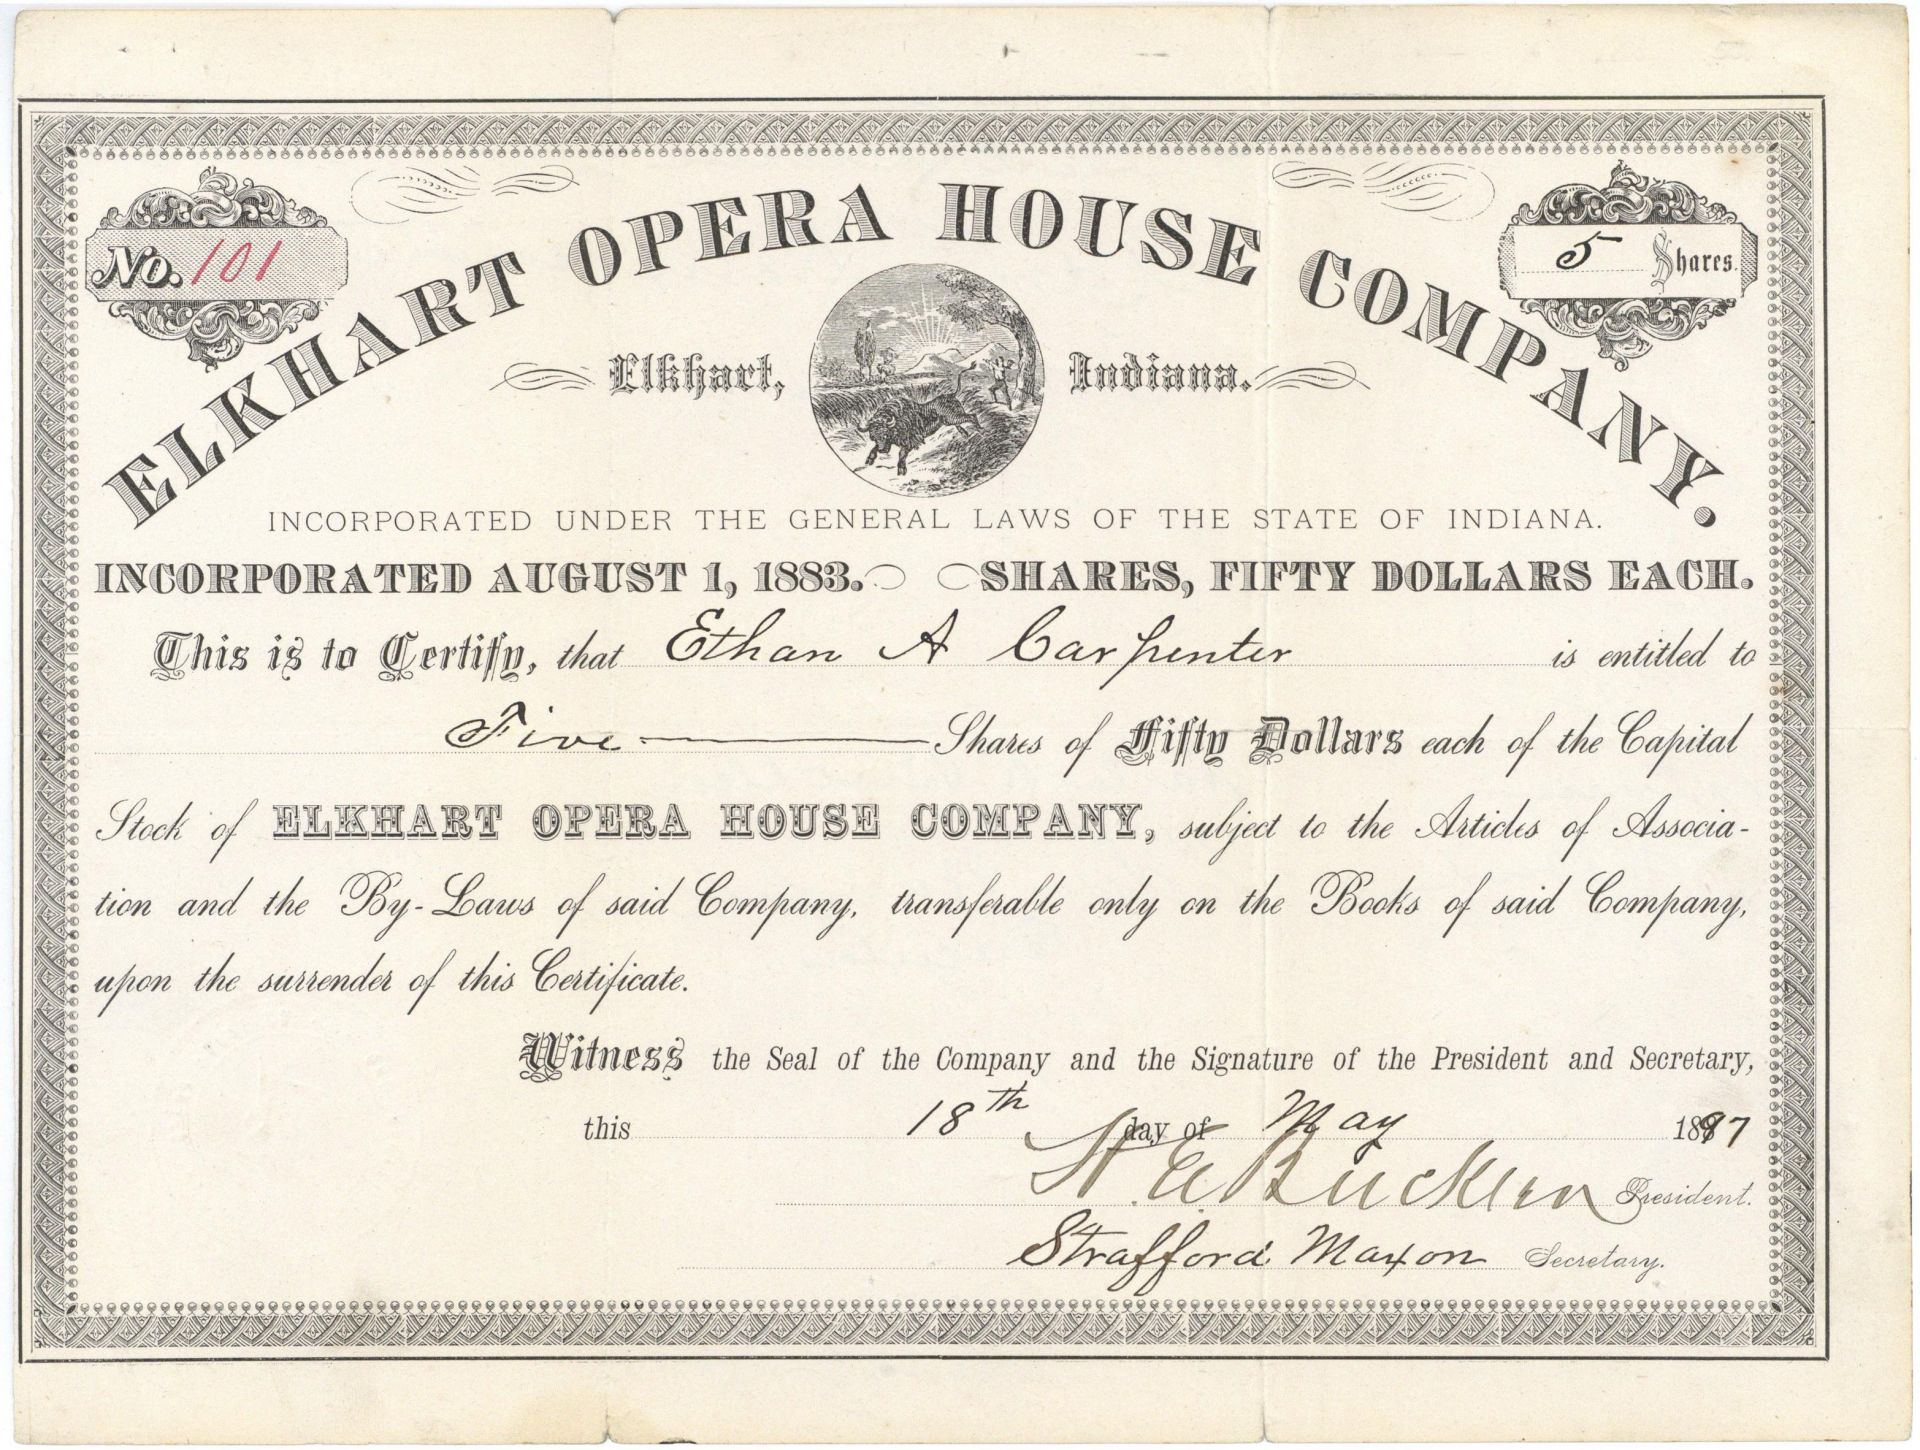 ELKHART OPERA HOUSE COMPANY.
No. 101
5 Shares.
Elkhart, Indiana.
INCORPORATED UNDER THE GENERAL LAWS OF THE STATE OF INDIANA.
INCORPORATED AUGUST 1, 1883. SHARES, FIFTY DOLLARS EACH.
This is to Certify, that Ethan A Carpenter is entitled to
Five Shares of Fifty Dollars each of the Capital
Stock of ELKHART OPERA HOUSE COMPANY, subject to the Articles of Associa-
tion and the By-Laws of said Company, transferable only on the Books of said Company,
upon the surrender of this Certificate.
Witness the Seal of the Company and the Signature of the President and Secretary,
this 18th day of May 1897
H. E. Bucklen President.
Strafford Maxon Secretary.